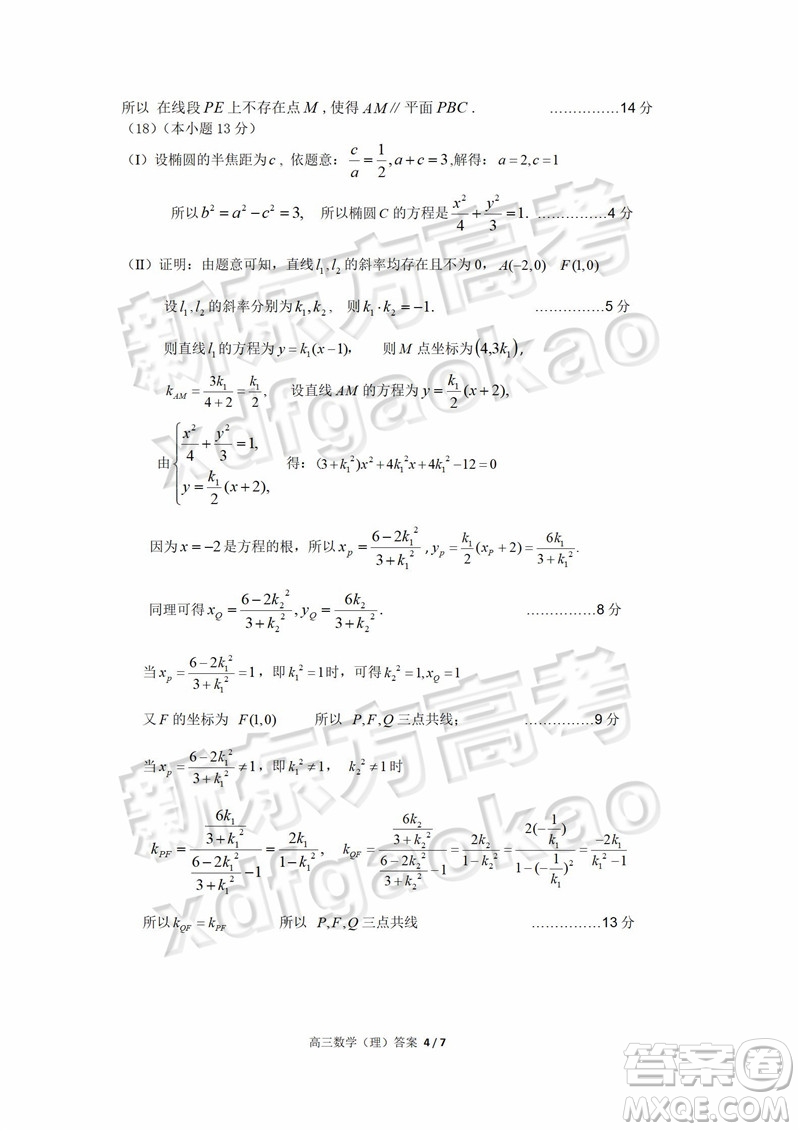 所以 在线段 PE 上不存在点 M , 使得 AM∥ 平面 PBC . ……………14 分
（18）（本小题 13 分）
（Ⅰ）设椭圆的半焦距为 c , 依题意: c/a = 1/2, a + c = 3 ,解得: a = 2, c = 1
所以 b² = a² − c² = 3, 所以椭圆 C 的方程是 x²/4 + y²/3 = 1. ……………4 分
（Ⅱ）证明：由题意可知，直线 l₁, l₂ 的斜率均存在且不为 0，A(−2,0) F(1,0)
设 l₁, l₂ 的斜率分别为 k₁, k₂ , 则 k₁ · k₂ = −1. ……………5 分
则直线 l₁ 的方程为 y = k₁(x − 1), 则 M 点坐标为 (4,3k₁) ,
k_AM = 3k₁/(4+2) = k₁/2, 设直线 AM 的方程为 y = k₁/2 (x + 2),
由 { x²/4 + y²/3 = 1, y = k₁/2 (x + 2), 得: (3 + k₁²)x² + 4k₁²x + 4k₁² − 12 = 0
因为 x = −2 是方程的根，所以 x_p = (6 − 2k₁²)/(3 + k₁²) , y_p = k₁/2 (x_P + 2) = 6k₁/(3 + k₁²).
同理可得 x_Q = (6 − 2k₂²)/(3 + k₂²), y_Q = 6k₂/(3 + k₂²). ……………8 分
当 x_p = (6 − 2k₁²)/(3 + k₁²) = 1，即 k₁² = 1 时，可得 k₂² = 1, x_Q = 1
又 F 的坐标为 F(1,0) 所以 P, F, Q 三点共线； ……………9 分
当 x_p = (6 − 2k₁²)/(3 + k₁²) ≠ 1，即 k₁² ≠ 1， k₂² ≠ 1 时
k_PF = (6k₁/(3 + k₁²))/((6 − 2k₁²)/(3 + k₁²) − 1) = 2k₁/(1 − k₁²), k_QF = (6k₂/(3 + k₂²))/((6 − 2k₂²)/(3 + k₂²) − 1) = 2k₂/(1 − k₂²) = 2(−1/k₁)/(1 − (−1/k₁)²) = −2k₁/(k₁² − 1)
所以 k_QF = k_PF 所以 P, F, Q 三点共线 ……………13 分
高三数学（理）答案 4 / 7
新东方高考
xdfgaokao
新东方高考
xdfgaokao
答案圈
MXQE.COM